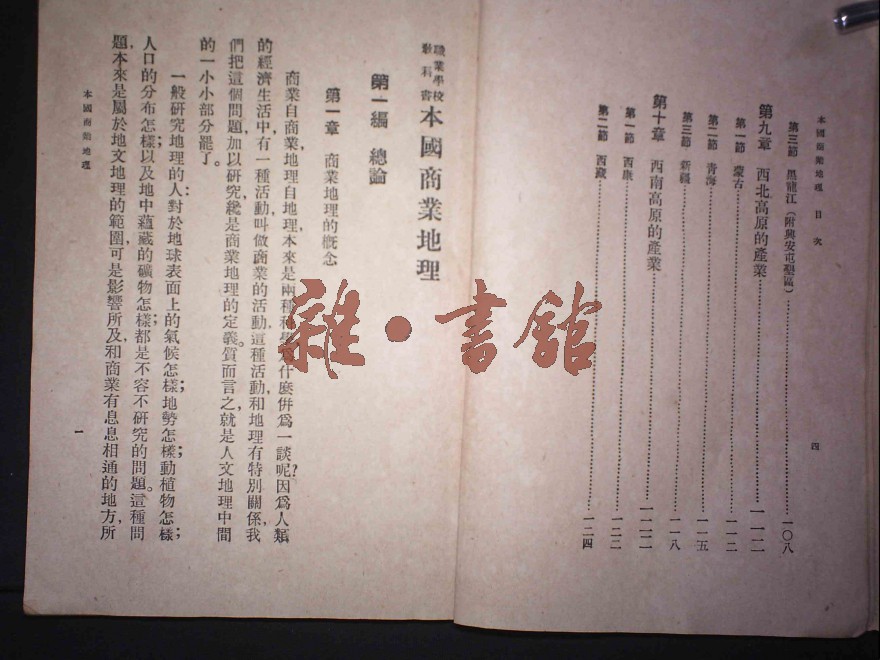 本國商業地理 目次
四
第三節 黑龍江（附興安屯墾區）……一〇八
第九章 西北高原的產業……一一二
第一節 蒙古……一一二
第二節 青海……一一五
第三節 新疆……一一八
第十章 西南高原的產業……一二二
第一節 西康……一二二
第二節 西藏……一二四
職業學校
教科書
本國商業地理
第一編 總論
第一章 商業地理的概念
商業自商業，地理自地理，本來是兩種科學，爲什麼併爲一談呢？因爲人類
的經濟生活中，有一種活動，叫做商業的活動，這種活動，和地理有特別關係，我
們把這個問題，加以研究，纔是商業地理的定義。質而言之，就是人文地理中間
的一小小部分罷了。
一般研究地理的人，對於地球表面上的氣候怎樣；地勢怎樣；動植物怎樣；
人口的分布怎樣；以及地中蘊藏的礦物怎樣；都是不容不研究的問題。這種問
題，本來是屬於地文地理的範圍，可是影響所及，和商業有息息相通的地方，所
本國商業地理
一
雜·書館